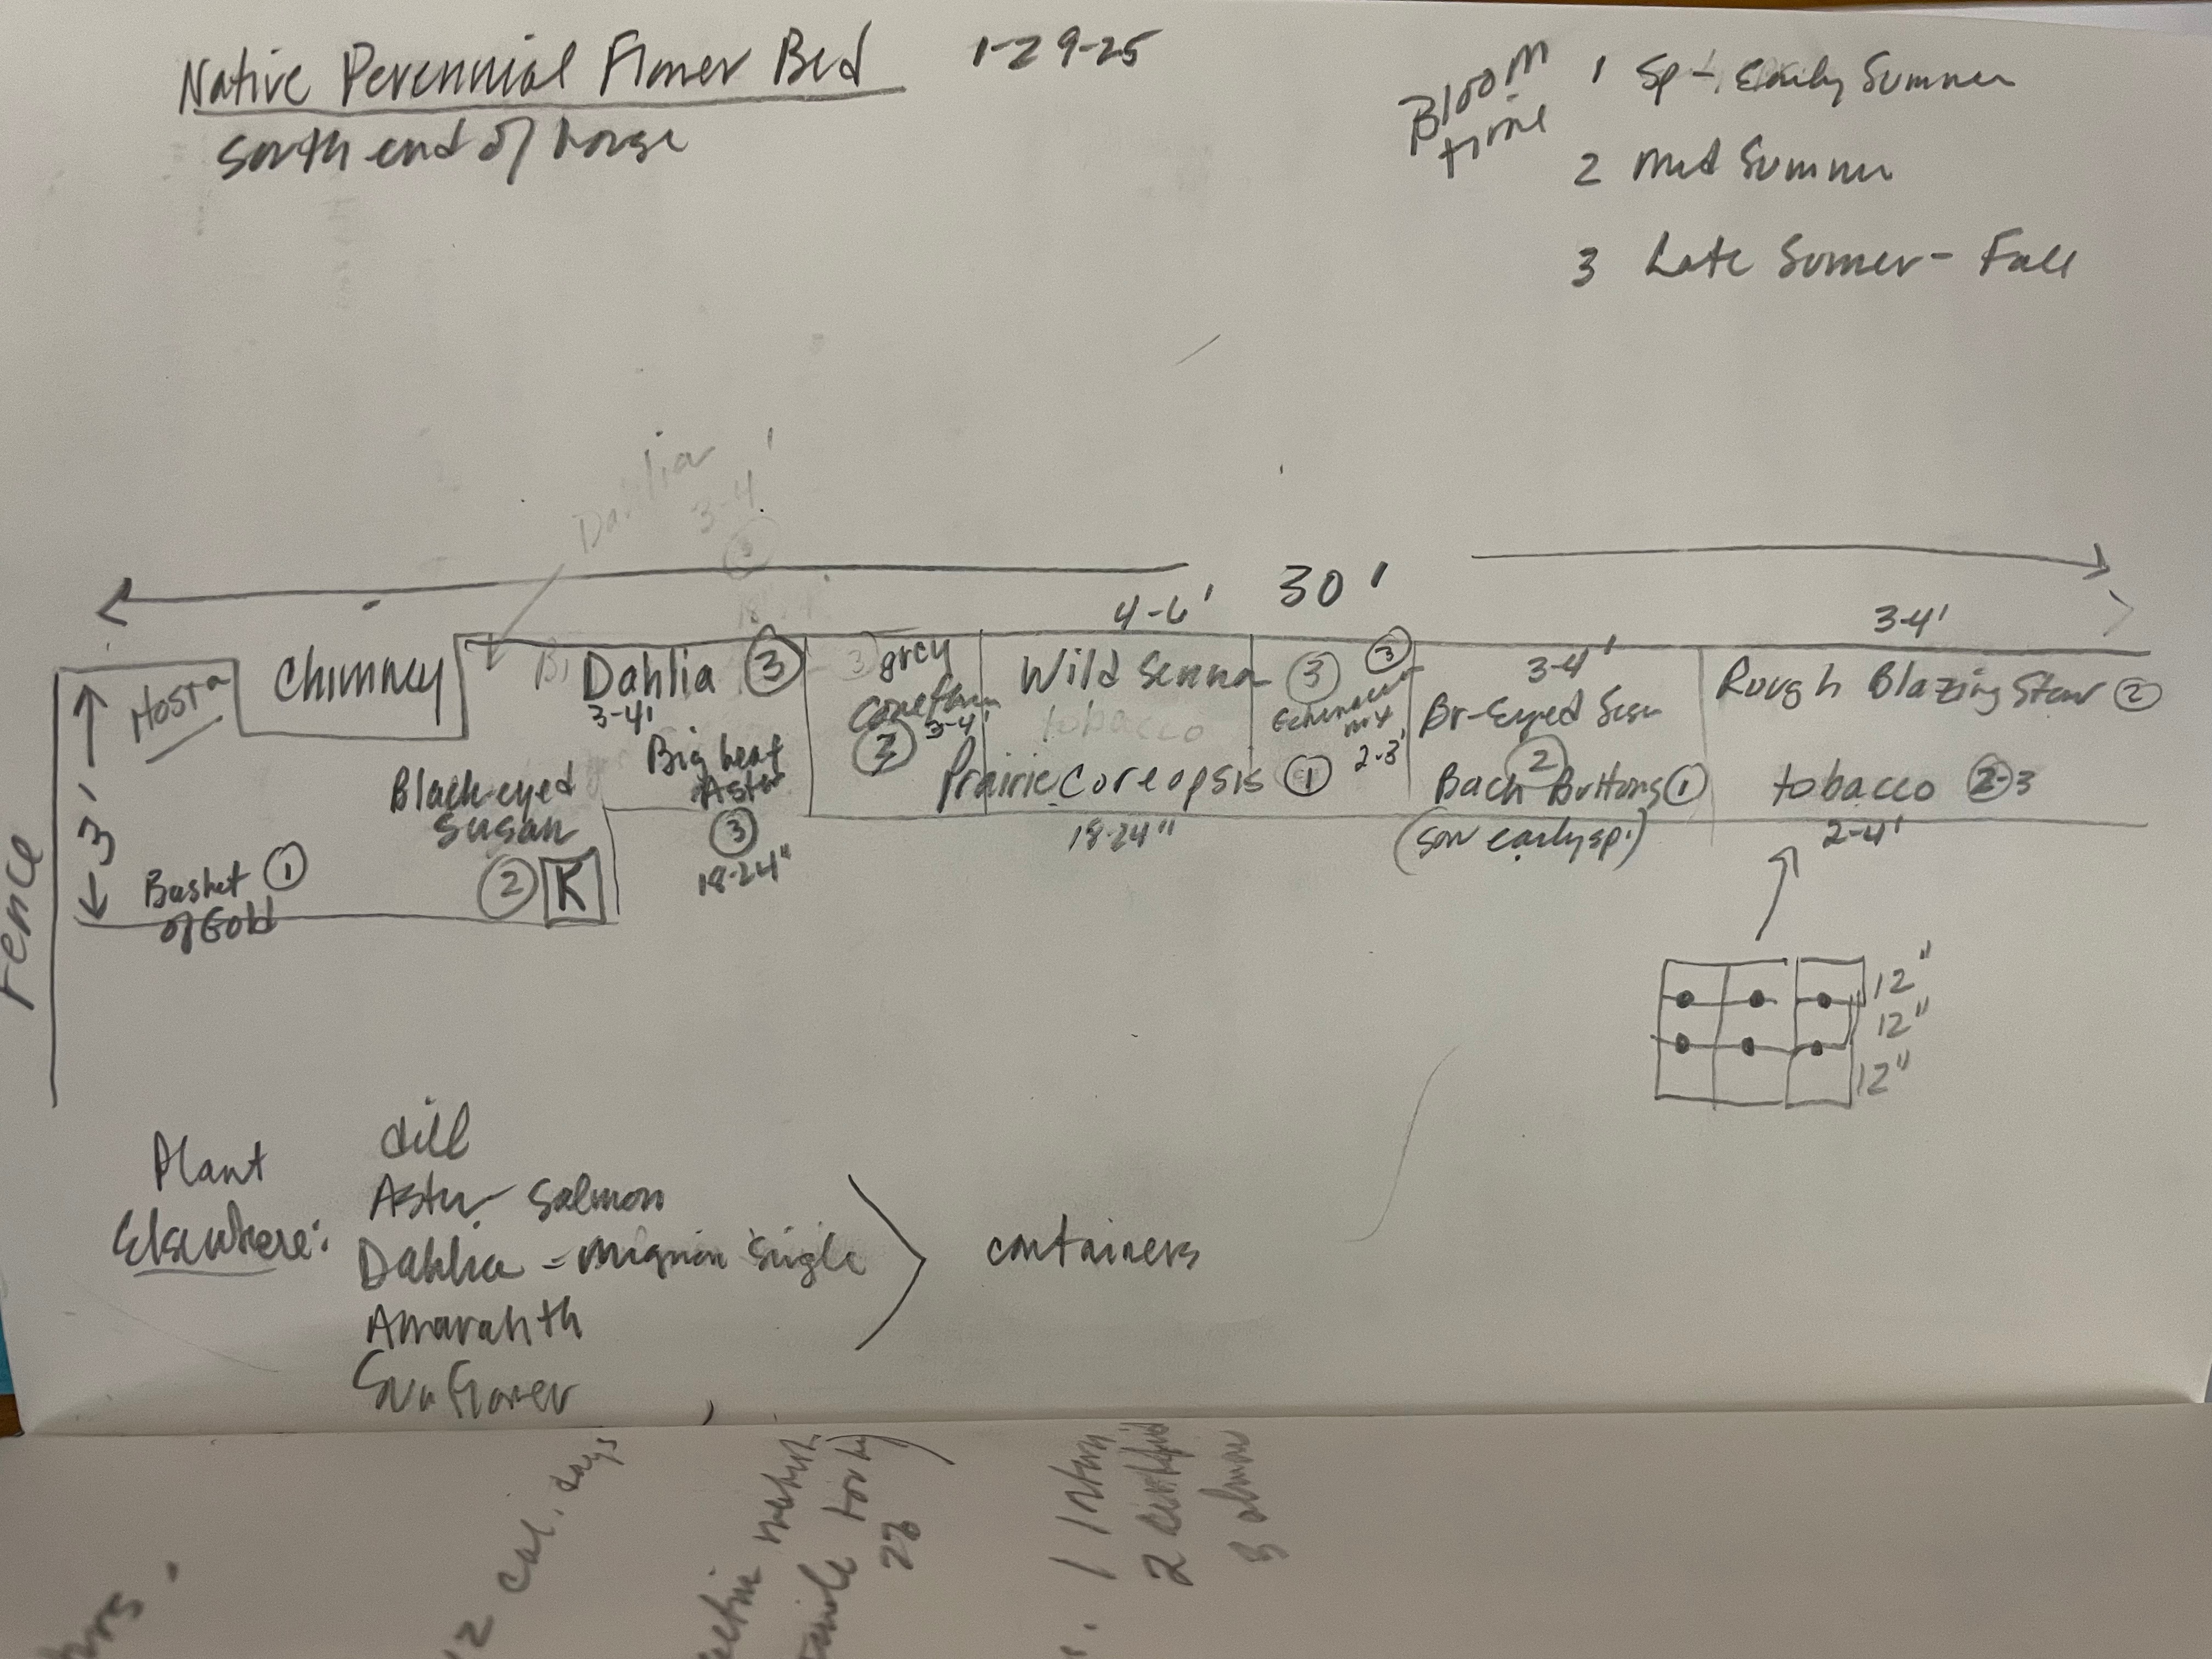 Native Perennial Flower Bed 1-29-25
South end of house
Bloom time
1 Sp - Early Summer
2 Mid Summer
3 Late Summer - Fall
Dahlia
3-4'
3
30'
4-6'
3-4'
Hosta
Chimney
Dahlia 3
3-4'
Big Leaf
Aster
3
18-24"
Black-eyed
Susan
2 K
Basket 1
of Gold
3'
Fence
grey
Conefl
3-4'
Wild Senna 3
tobacco
Prairie Coreopsis 1
18-24"
3
Echinacea
mix
2-3'
3-4'
Br-Eyed Susn
2
Bach Buttons 1
(sow early sp.)
Rough Blazing Star 2
tobacco 2-3
2-4'
12"
12"
12"
Plant
Elsewhere:
dill
Aster - Salmon
Dahlia - mignon single
Amaranth
Sunflower
containers
2 cal. days
hrs.
28
1 Intern
2 certified
3